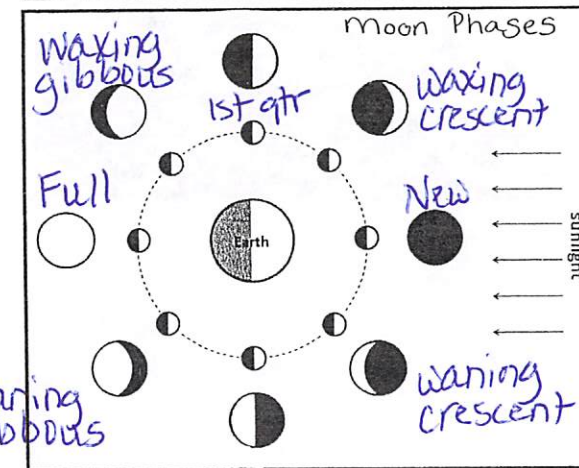 Moon Phases
waxing
gibbous
1st qtr
waxing
crescent
Full
New
Earth
sunlight
waning
crescent